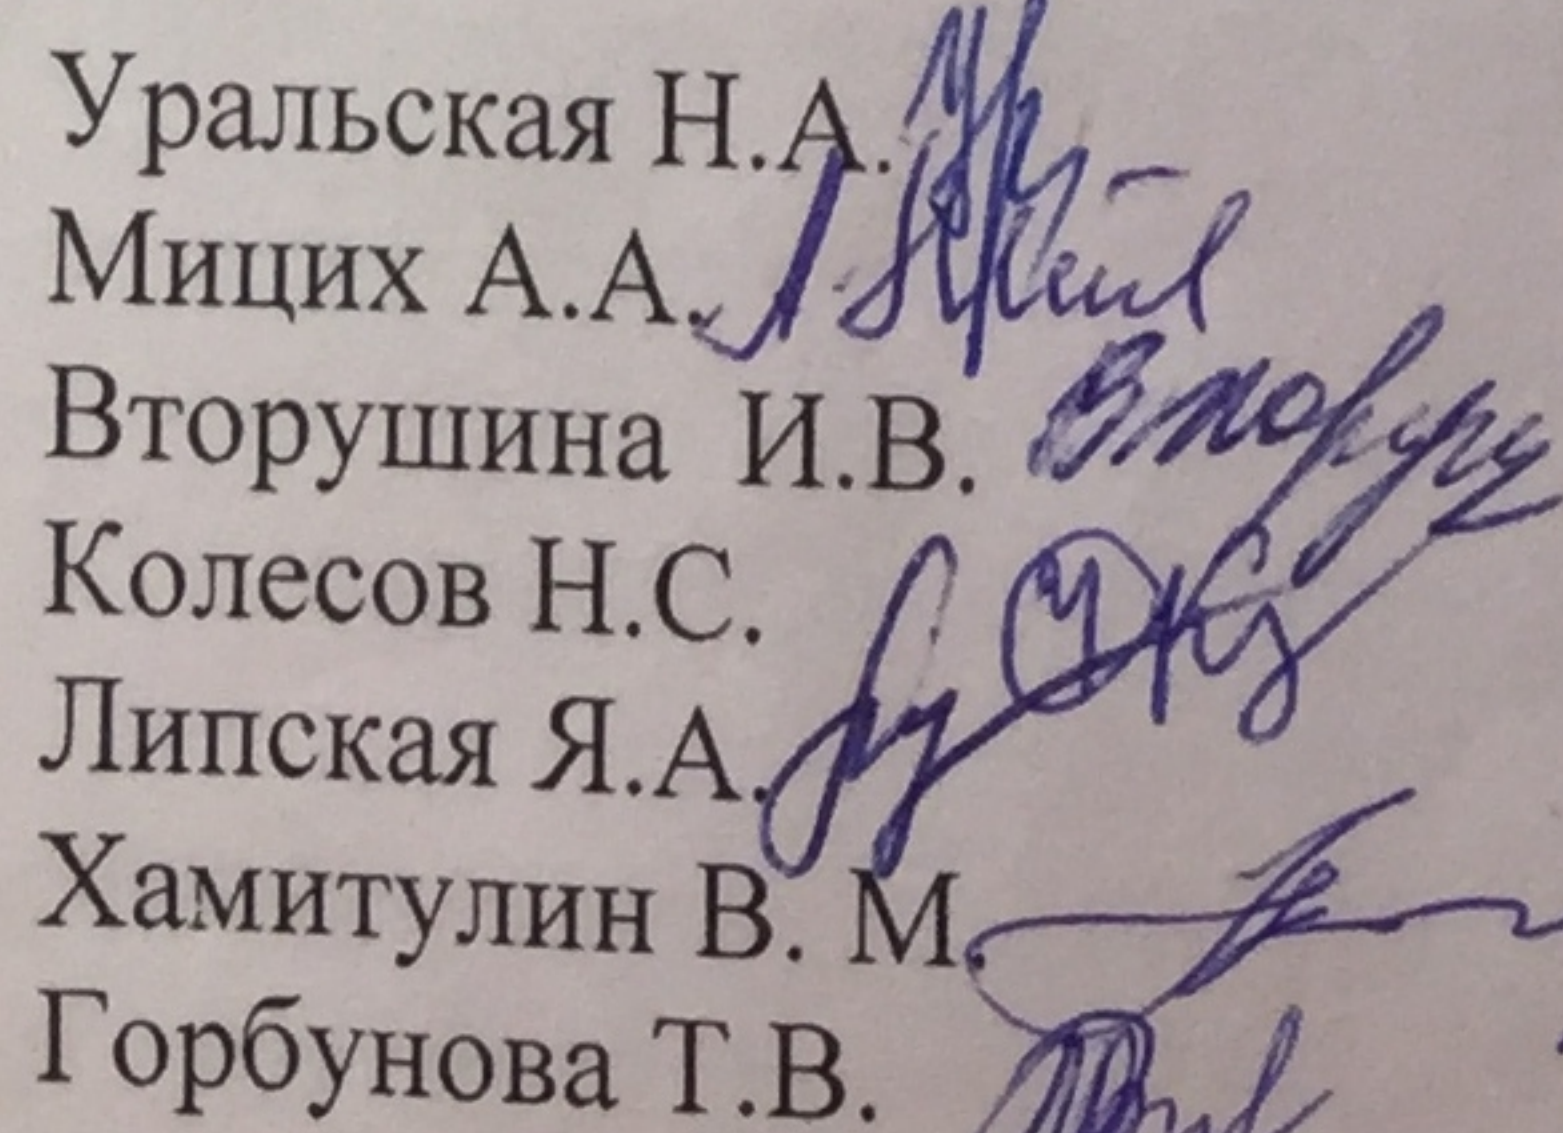 Уральская Н.А.
Мицих А.А.
Вторушина И.В.
Колесов Н.С.
Липская Я.А.
Хамитулин В. М.
Горбунова Т.В.